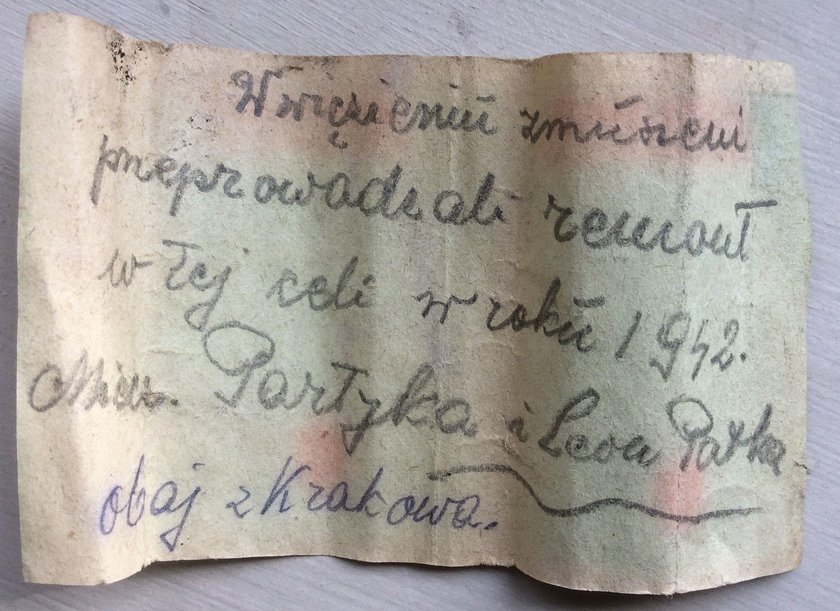 W więzieniu zmuszeni
przeprowadzali remont
w tej celi w roku 1942.
Miecz. Partyka i Leon Patka
obaj z Krakowa.